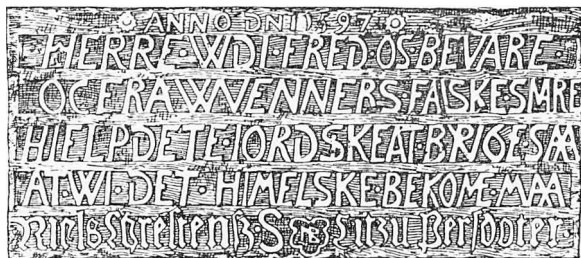 ANNO DNI 1597
HERRE WDI FRED OS BEVARE
OC FRA WVENNERS FALSKE SMRE
HIELP DETE IORDSKE AT BRVGE SAA
AT WI DET HIMELSKE BEKOME MAA
Niels S